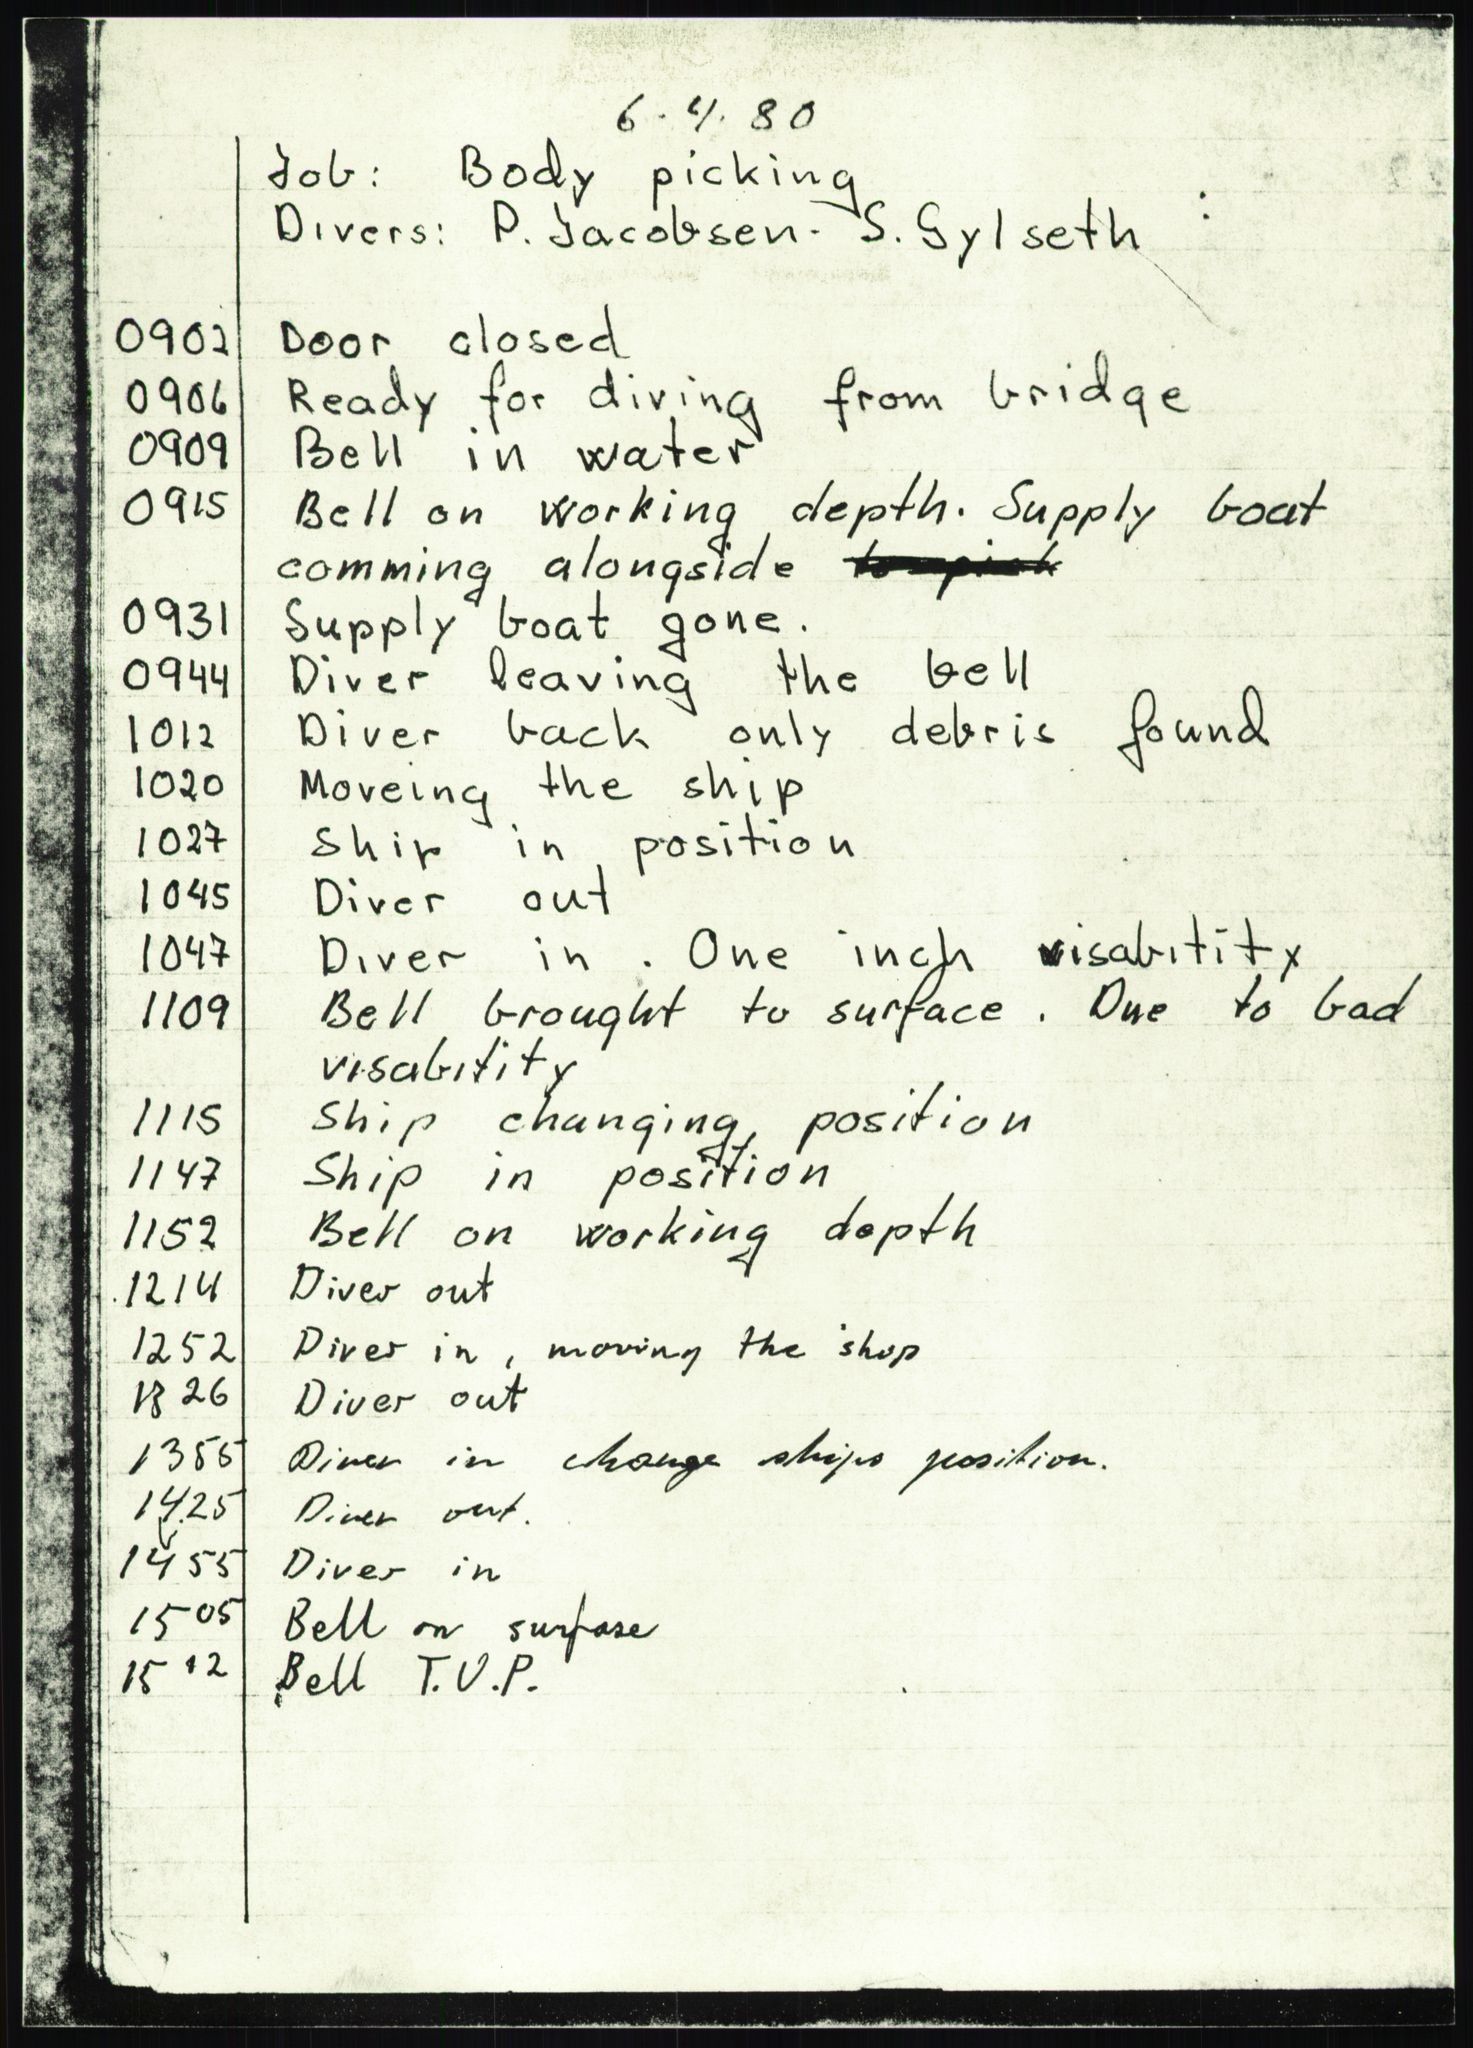 6.4.80
Job: Body picking
Divers: P. Jacobsen - S. Gylseth
0902 Door closed
0906 Ready for diving from bridge
0909 Bell in water
0915 Bell on working depth. Supply boat
comming alongside to pick
0931 Supply boat gone.
0944 Diver leaving the bell
1012 Diver back only debris found
1020 Moveing the ship
1027 Ship in position
1045 Diver out
1047 Diver in. One inch visabitity
1109 Bell brought to surface. Due to bad
visabitity
1115 Ship changing position
1147 Ship in position
1152 Bell on working depth
1214 Diver out
1252 Diver in, moving the ship
1326 Diver out
1355 Diver in change ships position.
1425 Diver out.
1455 Diver in
1505 Bell on surfase
1512 Bell T.U.P.